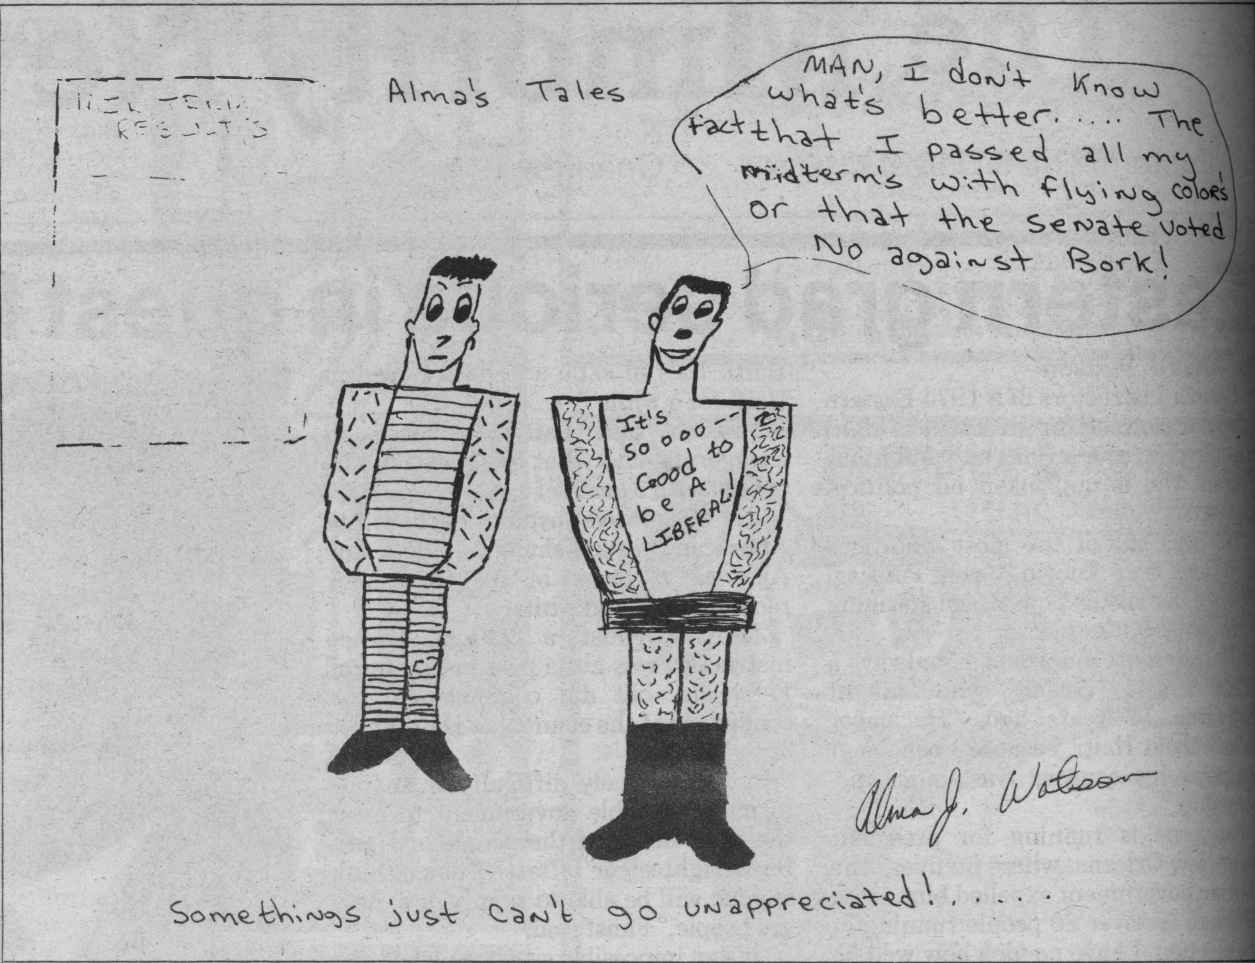 Alma's Tales
MID TERM
RESULTS
MAN, I don't Know
what's better..... The
fact that I passed all my
midterm's with flying colors
or that the Senate voted
No against Bork!
It's
So ooo
Good to
be A
LIBERAL!
Alma J. Watson
Somethings just can't go unappreciated!